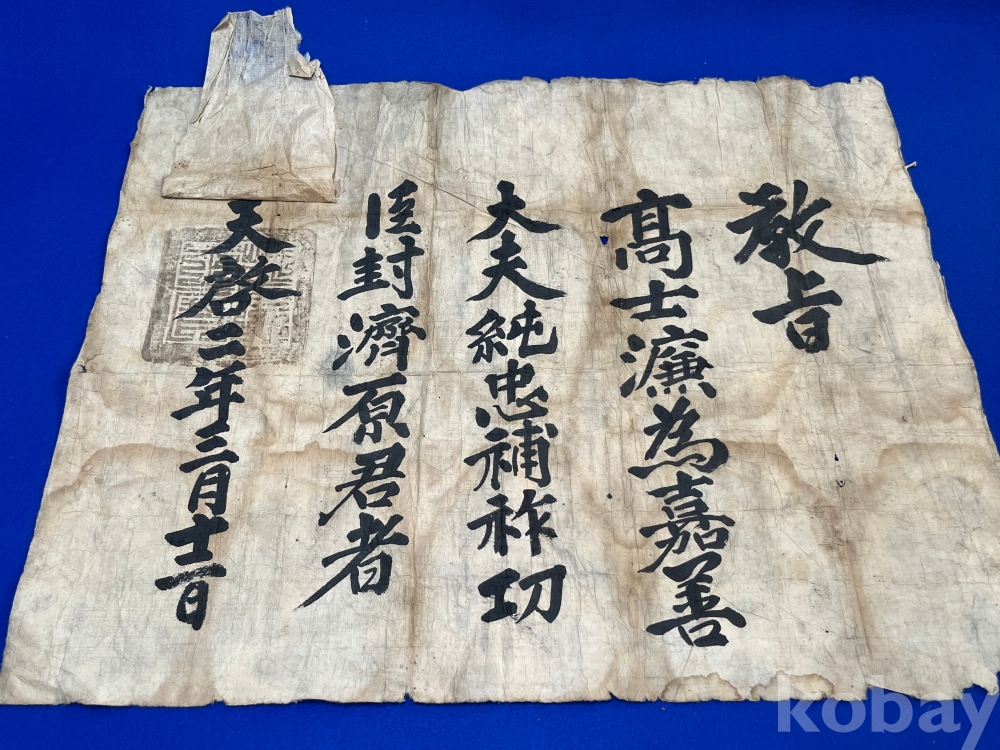 教旨
髙士濂為嘉善
大夫純忠補祚功
臣封濟原君者
天啓二年三月十二日
kobay